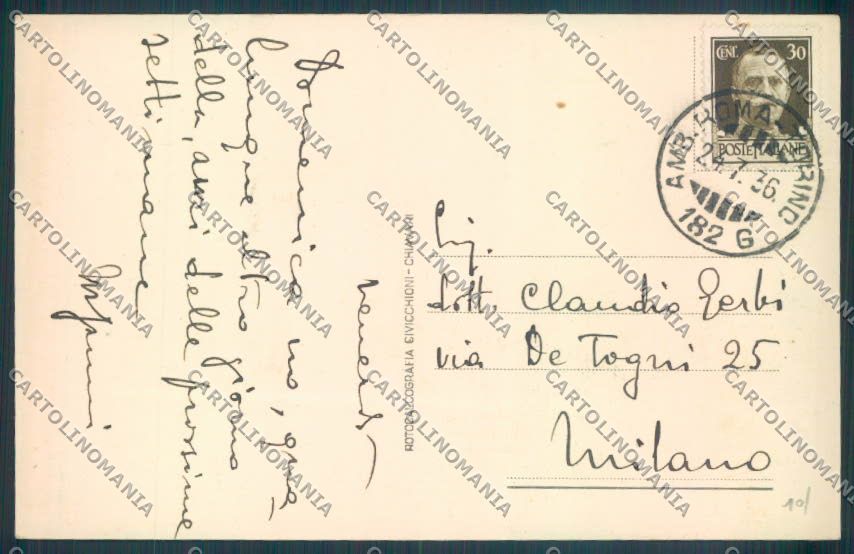 venerdì
Domenica no, qua-
lunque altro giorno
della, anzi delle prossime
settimane
ROTOCALCOGRAFIA CIVICCHIONI - CHIAVARI
CENT. 30
POSTE ITALIANE
AMB. ROMA-TORINO
24.7.36.
182 G
Sig.
dott. Claudio Gerbi
via De Togni 25
Milano
10/
CARTOLINOMANIA